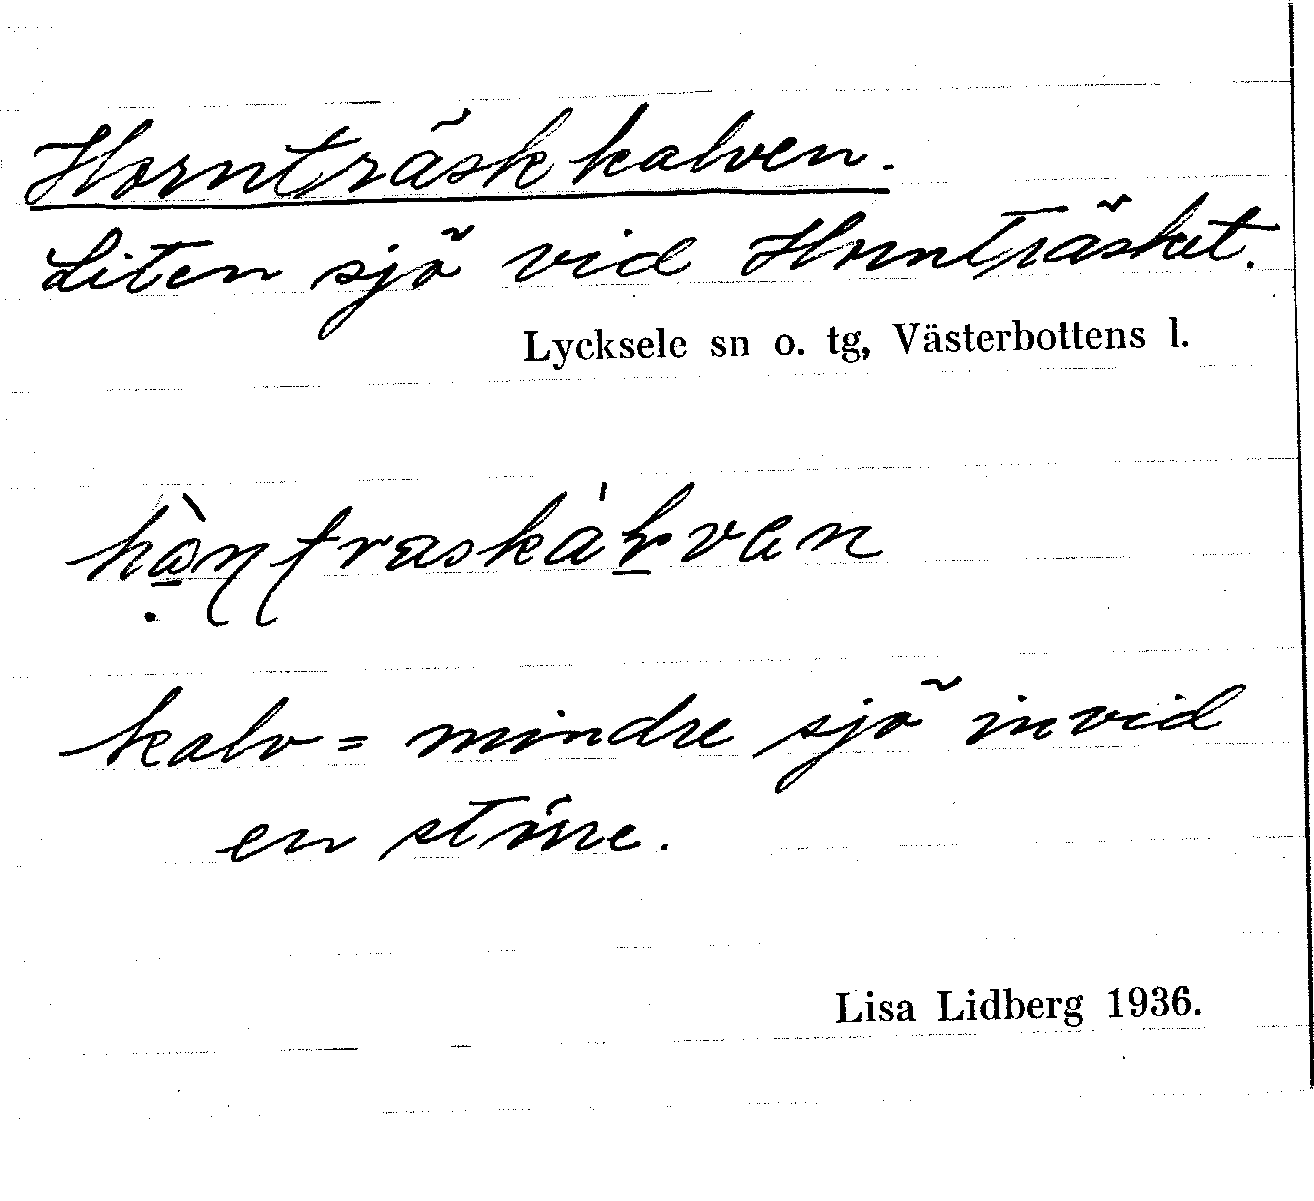 Hornträskkalven.
Liten sjö vid Hornträsket.
Lycksele sn o. tg, Västerbottens l.
kalv = mindre sjö invid
en större.
Lisa Lidberg 1936.